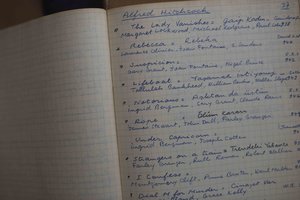 Alfred Hitchcock
The Lady Vanishes = Gaip Kadın
Margaret Lockwood, Michael Redgrave, Paul Lukas
Rebecca = Rebeka
Laurence Olivier, Joan Fontaine, G. Sanders
Suspicion =
Cary Grant, Joan Fontaine, Nigel Bruce
Lifeboat = Yaşamak
Tallulah Bankhead, William Bendix, Walter
Notorious = Aşktan da üstün
Ingrid Bergman, Cary Grant, Claude Rains
Rope = Ölüm Kararı
James Stewart, John Dall, Farley Granger
Under Capricorn =
Ingrid Bergman, Joseph Cotten
Strangers on a train = Trendeki Yabancı
Farley Granger, Ruth Roman, Robert Walker
I Confess =
Montgomery Clift, Anne Baxter, Karl Malden
Dial M for Murder = Cinayet Var
Grace Kelly